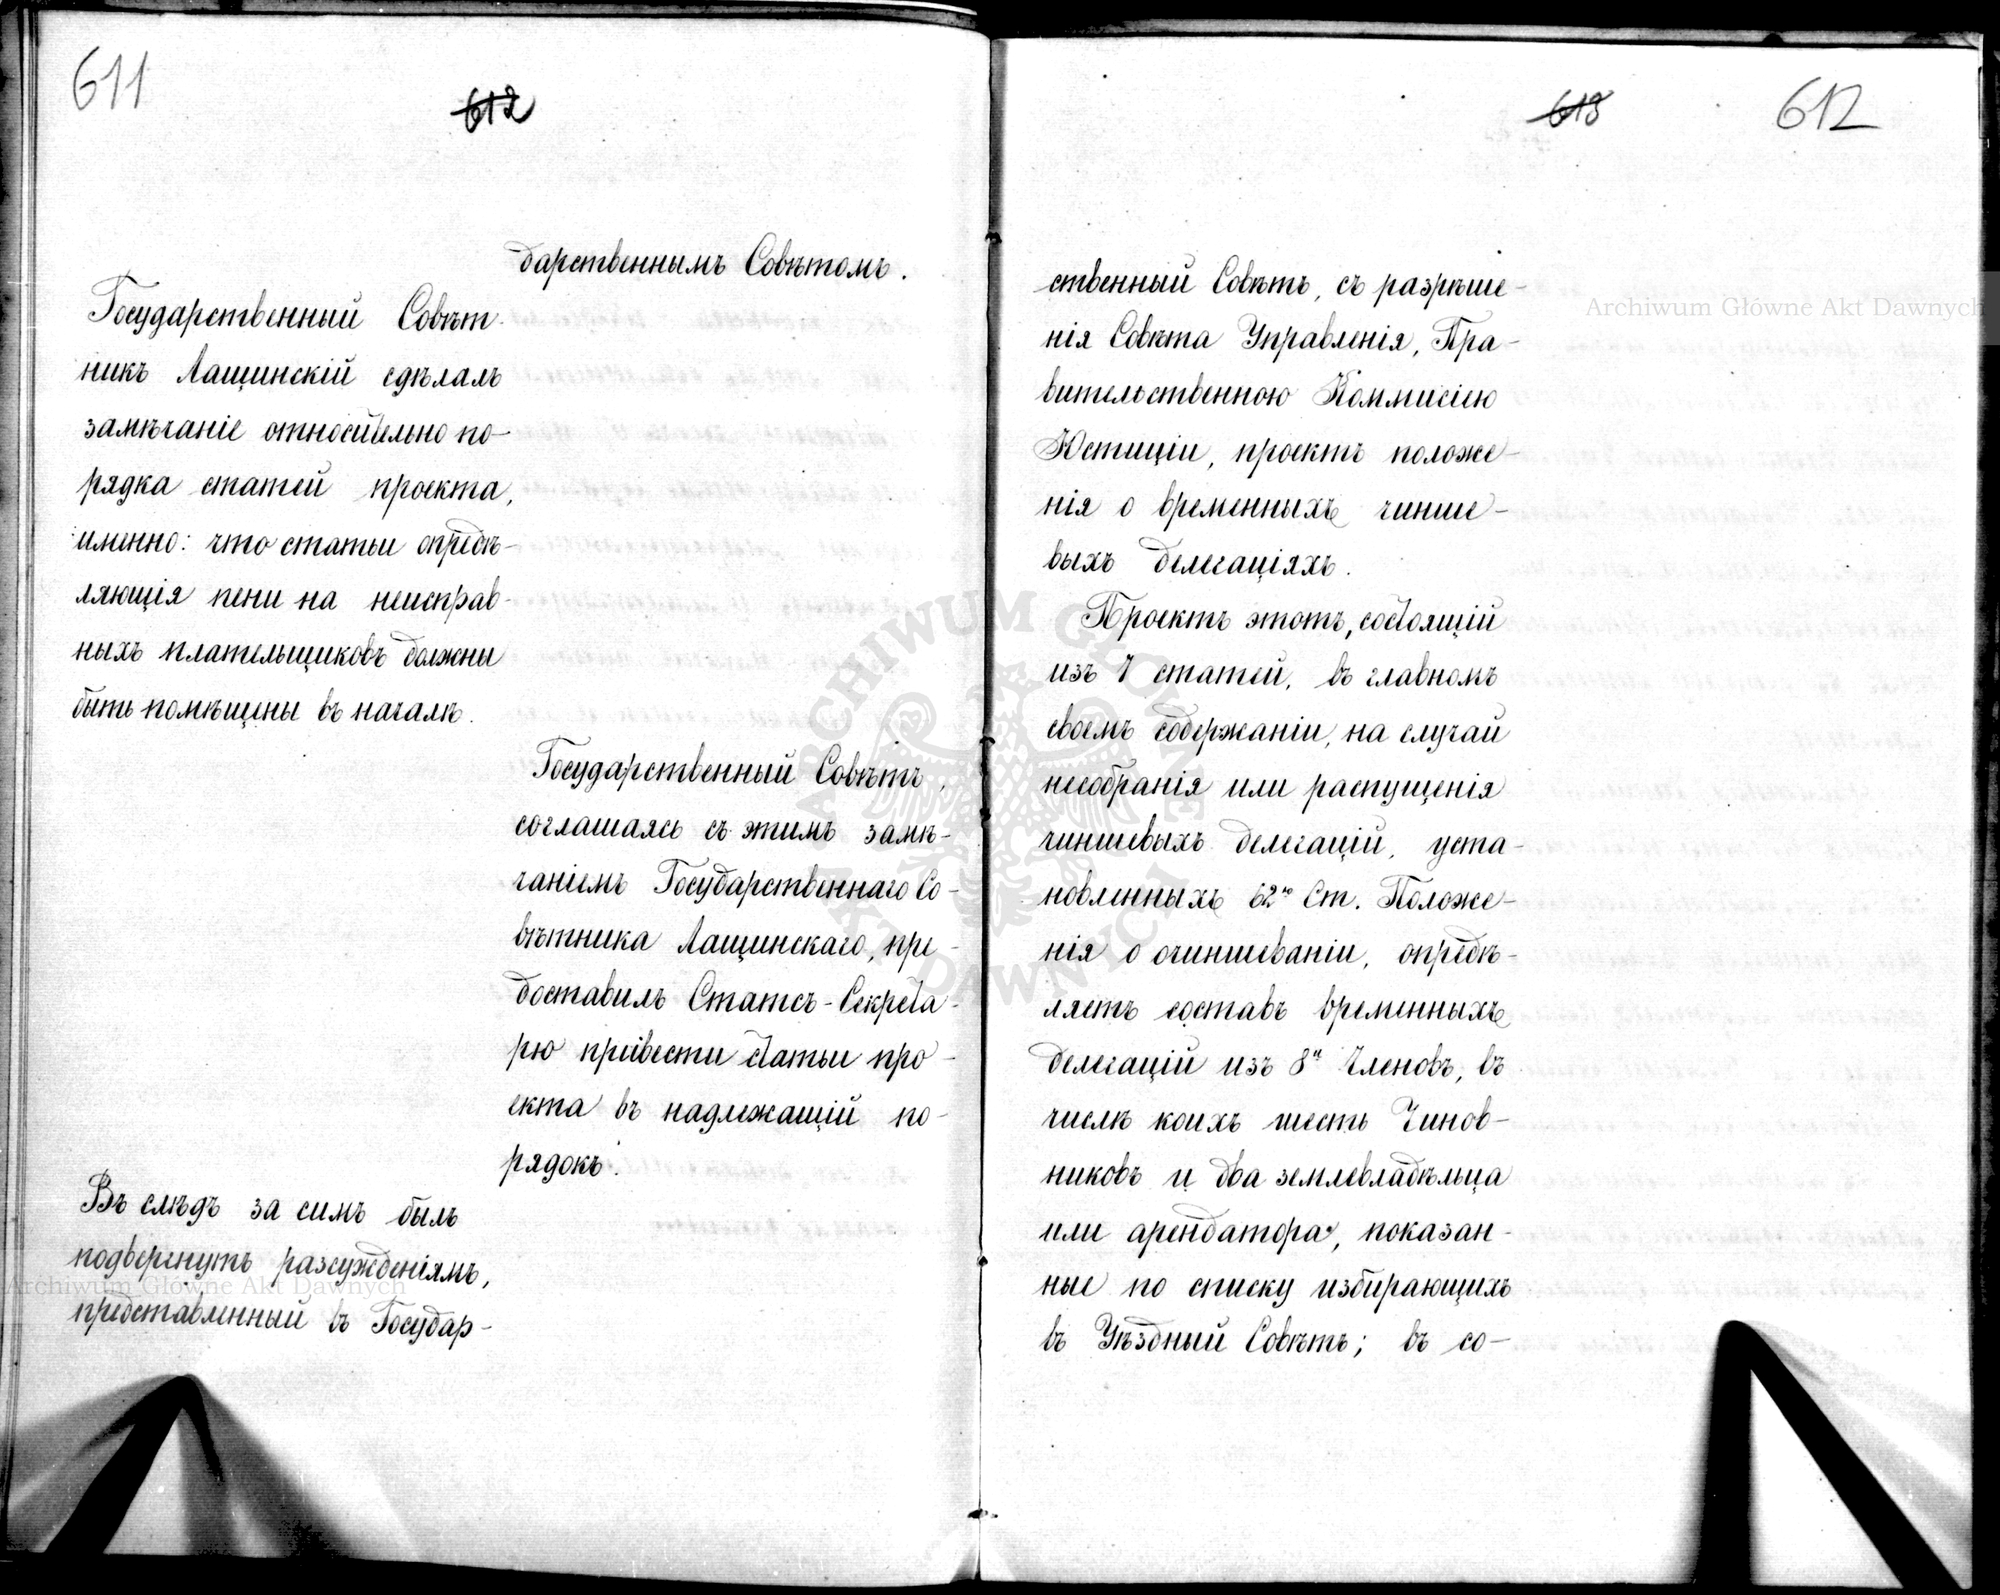 611
612
дарственнымъ Совѣтомъ.
Государственный Совѣт-
никъ Лащинскій сдѣлалъ
замѣчаніе относительно по-
рядка статей проекта,
именно: что статьи опредѣ-
ляющія пени на неисправ-
ныхъ плательщиковъ должны
быть помѣщены въ началѣ.
Государственный Совѣтъ,
соглашаясь съ этимъ замѣ-
чаніемъ Государственнаго Со-
вѣтника Лащинскаго, пре-
доставилъ Статсъ-Секрета-
рю привести статьи про-
екта въ надлежащій по-
рядокъ.
Въ слѣдъ за симъ былъ
подвергнутъ разсужденіямъ,
представленный въ Государ-
613
612
ственный Совѣтъ, съ разрѣше-
нія Совѣта Управленія, Пра-
вительственною Коммисіею
Юстиціи, проектъ положе-
нія о временныхъ чинше-
выхъ делегаціяхъ.
Проектъ этотъ, состоящій
изъ статей, въ главномъ
своемъ содержаніи, на случай
несобранія или распущенія
чиншевыхъ делегацій, уста-
новленныхъ 62ю Ст. Положе-
нія о очиншеваніи, опредѣ-
ляетъ составъ временныхъ
делегацій изъ 8и Членовъ, въ
числѣ коихъ шесть Чинов-
никовъ и два землевладѣльца
или арендатора, показан-
ные по списку избирающихъ
въ Уѣздный Совѣтъ; въ со-
Archiwum Główne Akt Dawnych
Archiwum Główne Akt Dawnych
ARCHIWUM GŁÓWNE AKT DAWNYCH